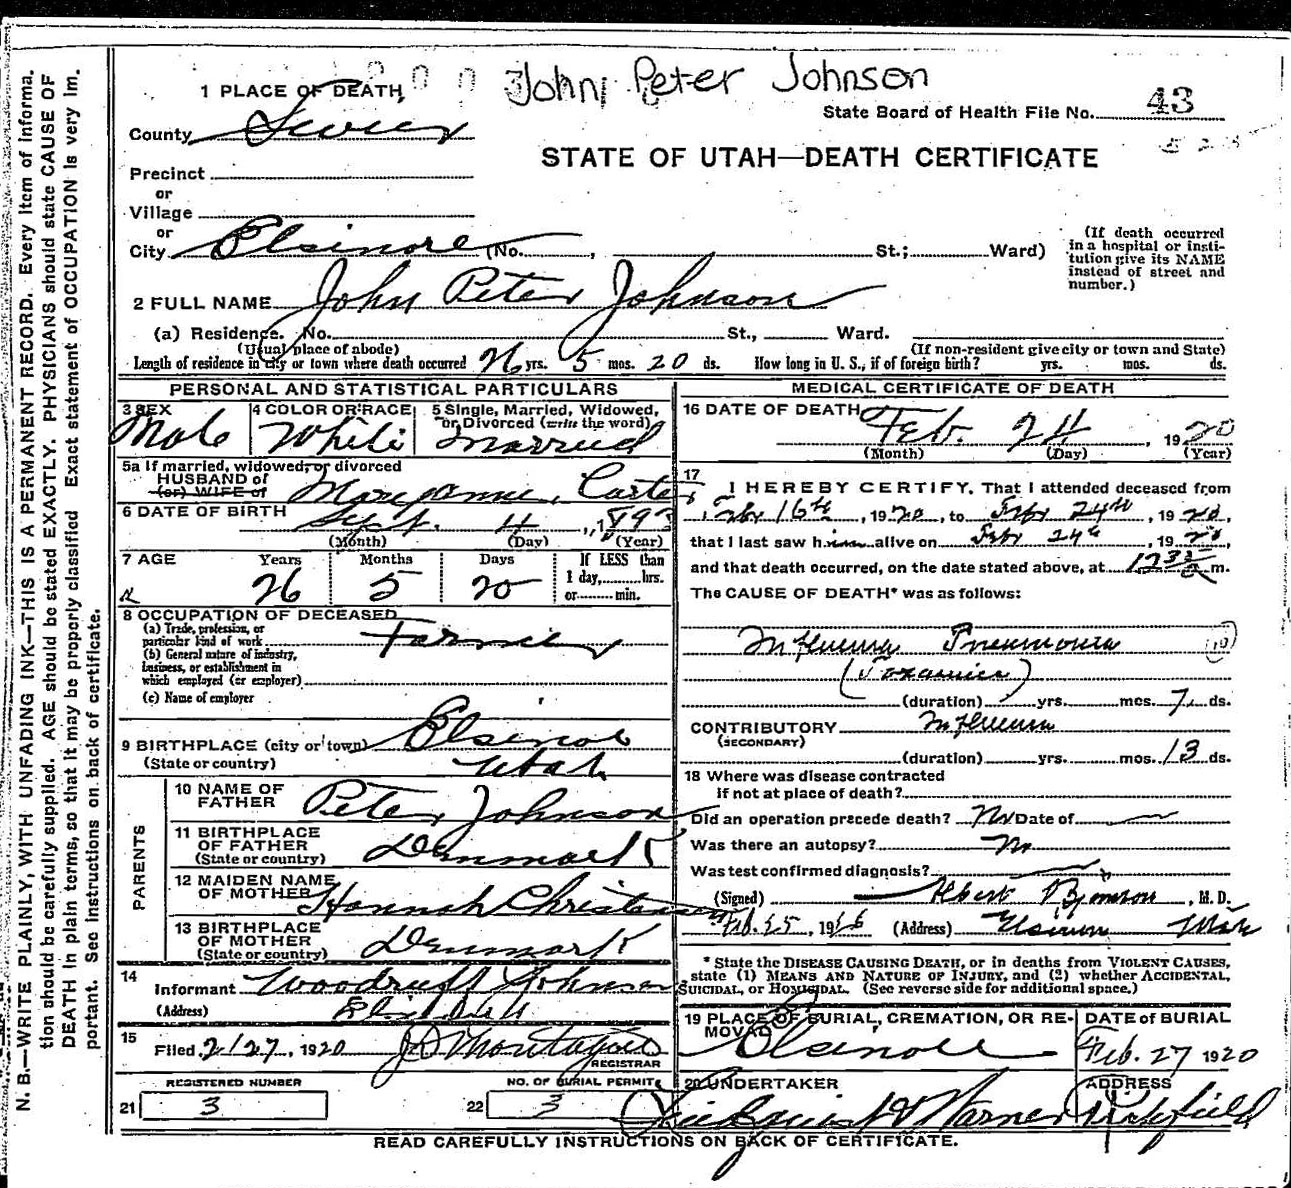 John Peter Johnson
1 PLACE OF DEATH,
State Board of Health File No. 43
County Sevier
STATE OF UTAH—DEATH CERTIFICATE
Precinct
or
Village
or
City Elsinore (No. , St.; Ward)
(If death occurred in a hospital or institution give its NAME instead of street and number.)
2 FULL NAME John Peter Johnson
(a) Residence. No. St., Ward.
(Usual place of abode) (If non-resident give city or town and State)
Length of residence in city or town where death occurred 26 yrs. 5 mos. 20 ds. How long in U. S., if of foreign birth? yrs. mos. ds.
PERSONAL AND STATISTICAL PARTICULARS
3 SEX Male
4 COLOR OR RACE White
5 Single, Married, Widowed, or Divorced (write the word) Married
5a If married, widowed, or divorced
HUSBAND of
(or) WIFE of Maryanne Carter
6 DATE OF BIRTH Sept. 4, 1893
(Month) (Day) (Year)
7 AGE Years Months Days If LESS than
26 5 20 1 day, hrs.
or min.
8 OCCUPATION OF DECEASED
(a) Trade, profession, or
particular kind of work Farmer
(b) General nature of industry,
business, or establishment in
which employed (or employer)
(c) Name of employer
9 BIRTHPLACE (city or town) Elsinore
(State or country) Utah
PARENTS
10 NAME OF FATHER Peter Johnson
11 BIRTHPLACE OF FATHER (State or country) Denmark
12 MAIDEN NAME OF MOTHER Hannah Christensen
13 BIRTHPLACE OF MOTHER (State or country) Denmark
14
Informant Woodruff Johnson
(Address)
15 Filed 2/27, 1920 REGISTRAR
REGISTERED NUMBER NO. OF BURIAL PERMIT
21 3 22 3
MEDICAL CERTIFICATE OF DEATH
16 DATE OF DEATH Feb. 24, 1920
(Month) (Day) (Year)
17
I HEREBY CERTIFY, That I attended deceased from
Feb 16th, 1920, to Feb 24th, 1920,
that I last saw him alive on Feb 24th, 1920,
and that death occurred, on the date stated above, at m.
The CAUSE OF DEATH* was as follows:
Influenza Pneumonia (10)
(Toxaemia)
(duration) yrs. mos. 7 ds.
CONTRIBUTORY Influenza
(SECONDARY)
(duration) yrs. mos. 13 ds.
18 Where was disease contracted
if not at place of death?
Did an operation precede death? No Date of
Was there an autopsy? No
Was test confirmed diagnosis?
(Signed) , M. D.
Feb. 25, 19 (Address) Elsinore Utah
* State the DISEASE CAUSING DEATH, or in deaths from VIOLENT CAUSES,
state (1) MEANS AND NATURE OF INJURY, and (2) whether ACCIDENTAL,
SUICIDAL, or HOMICIDAL. (See reverse side for additional space.)
19 PLACE OF BURIAL, CREMATION, OR REMOVAL DATE OF BURIAL
Elsinore Feb. 27 1920
20 UNDERTAKER ADDRESS
Warner Richfield
READ CAREFULLY INSTRUCTIONS ON BACK OF CERTIFICATE.
N. B.—WRITE PLAINLY, WITH UNFADING INK—THIS IS A PERMANENT RECORD. Every item of information should be carefully supplied. AGE should be stated EXACTLY. PHYSICIANS should state CAUSE OF
DEATH in plain terms, so that it may be properly classified Exact statement of OCCUPATION is very important. See instructions on back of certificate.